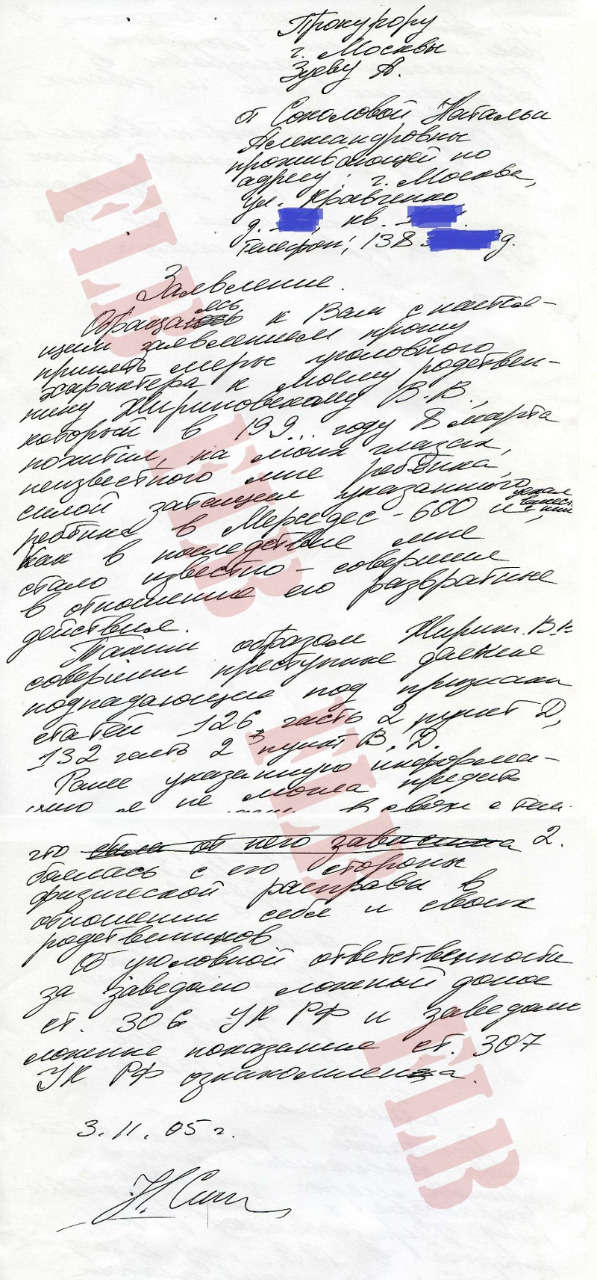 Прокурору
г. Москвы
Зуеву А.
от Соколовой Натальи
Александровны
проживающей по
адресу: г. Москва,
ул. Кравченко
д. кв.
Телефон; 138 д.
Заявление.
Обращаюсь к Вам с настоя-
щим заявлением прошу
принять меры уголовного
характера к моему родствен-
нику Жириновскому В.В.,
который в 199... году 8 марта
похитил, на моих глазах,
неизвестного мне ребёнка,
силой затащил указанного
ребёнка в Мерседес-600 и уехал
Как в последствие мне
стало известно совершил
в отношении его развратные
действия.
Таким образом Жирин. В.В
совершил преступные деяние
подпадающие под признаки
статей 126 часть 2 пункт Д,
132 часть 2 пункт В, Д.
Ранее указанную информа-
цию я не могла придать
в связи с тем
что была от него зависима 2.
боялась с его стороны
физической расправы в
отношении себя и своих
родственников
Об уголовной ответственности
за заведомо ложный донос
ст. 306 УК РФ и заведомо
ложные показание ст. 307
УК РФ ознакомлена.
3.11.05 г.
FLB
FLB
FLB
FLB